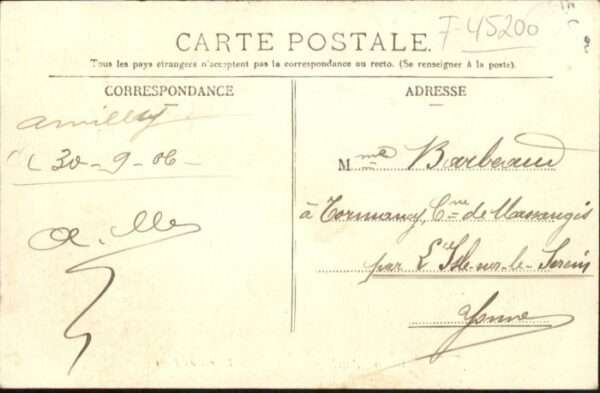 F-45200
CARTE POSTALE.
Tous les pays étrangers n'acceptent pas la correspondance au recto. (Se renseigner à la poste).
CORRESPONDANCE
Amilly
30-9-06-
ADRESSE
Mme Barbeaud
à Tormancy, Cne de Massangis
par L'Isle-sur-le-Serein
Yonne